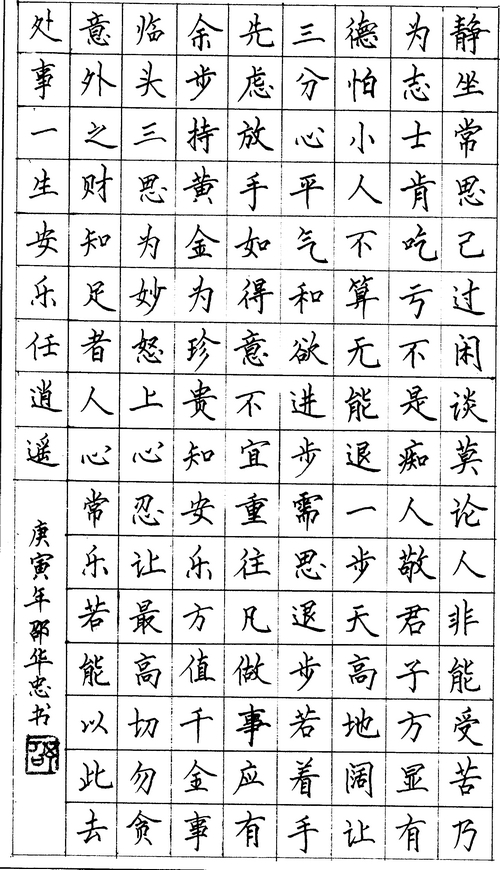 静坐常思己过闲谈莫论人非能受苦乃
为志士肯吃亏不是痴人敬君子方显有
德怕小人不算无能退一步天高地阔让
三分心平气和欲进步需思退步若着手
先虑放手如得意不宜重往凡做事应有
余步持黄金为珍贵知安乐方值千金事
临头三思为妙怒上心忍让最高切勿贪
意外之财知足者人心常乐若能以此去
处事一生安乐任逍遥
庚寅年邵华忠书